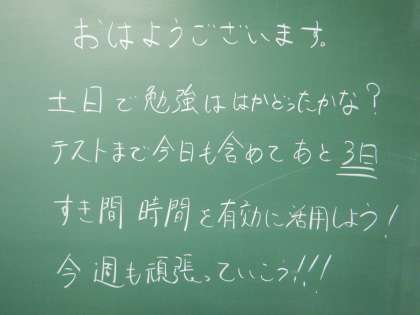 おはようございます。
土日で勉強ははかどったかな?
テストまで今日も含めてあと3日
すき間時間を有効に活用しよう!
今週も頑張っていこう!!!